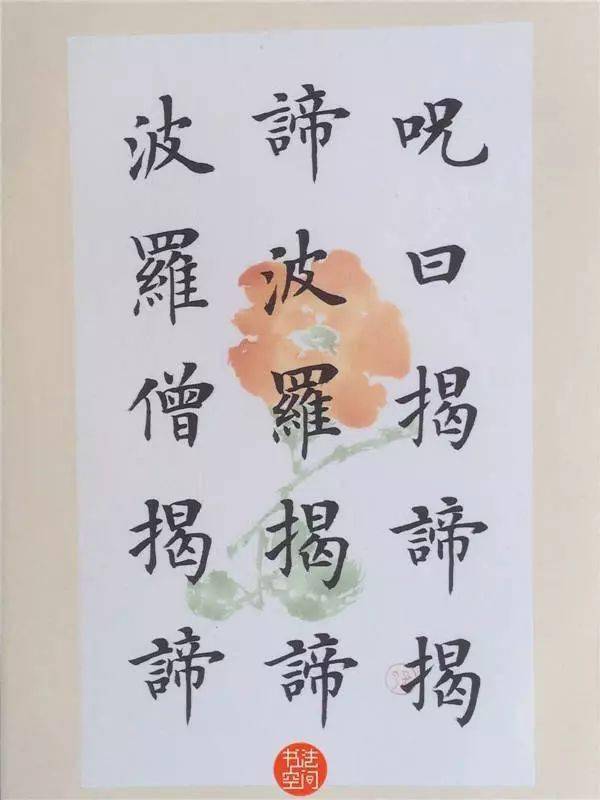 呪曰揭諦揭
諦波羅揭諦
波羅僧揭諦
书法空间